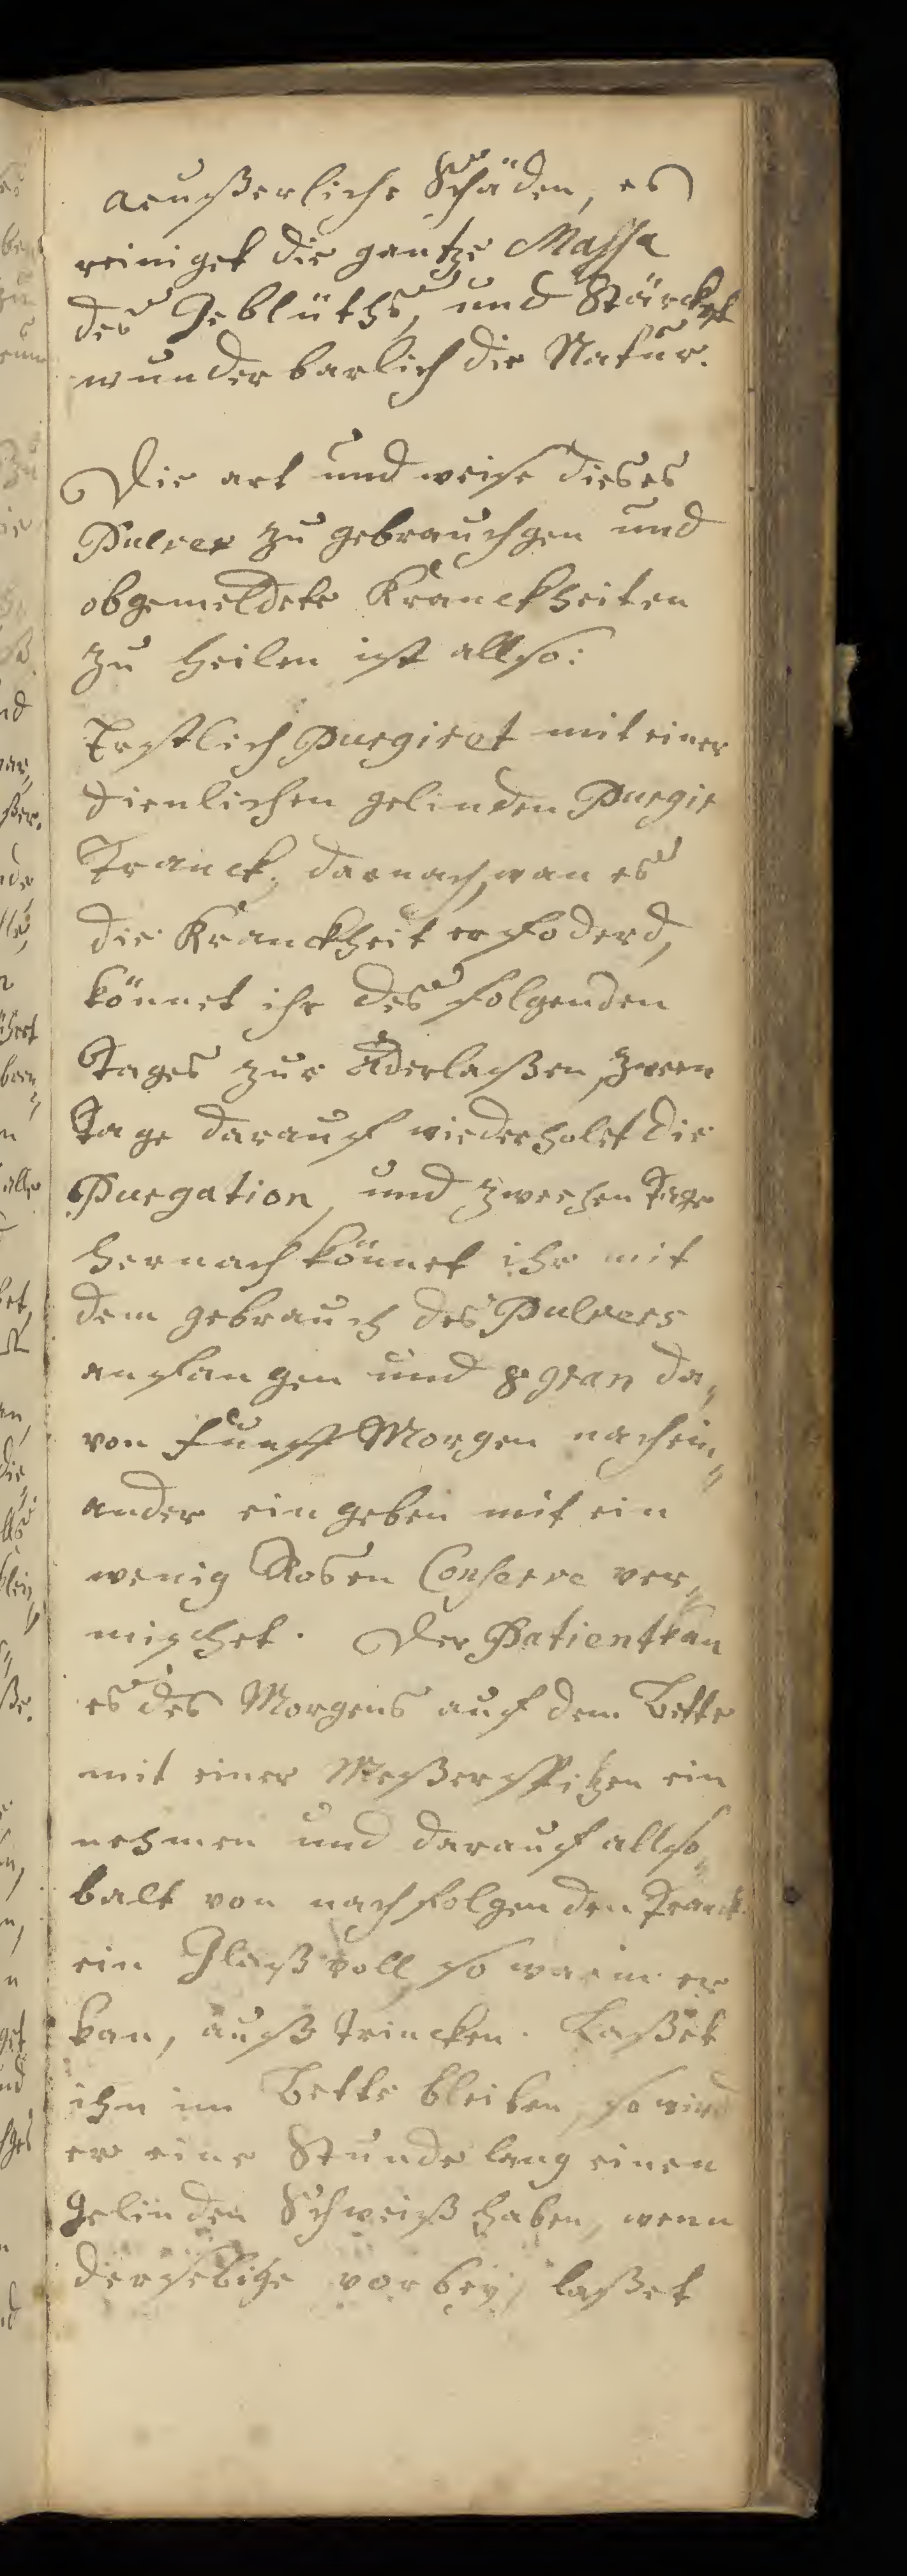 aeußerliche Schäden, es
reiniget die gantze Massa
des Geblüths, und Stärcket
wunderbarlich die Natur.
Die art und weise dieses
Pulver zu gebrauchgen und
obgemeldete Kranckheiten
zu heilen ist allso:
Erstlich Purgiret mit einer
dienlichen gelinden Purgir
Tranck, darnach, wan es
die Kranckheit erfoderd,
könnet ihr des folgenden
Tages zur Aderlaßen, zween
Tage darauf wiederholet die
Purgation, und zwechen Tage
hernach könnet ihr mit
dem gebrauch des Pulvers
anfangen und 8 gran da,
von Funff Morgen nachein,,
ander eingeben mit ein
wenig Rosen Conserve ver,,
mischet. Der Patient kan
es des Morgens auf dem Bette
mit einer Meßerspitzen ein
nehmen und darauf allso,,
balt von nachfolgenden Tranck
ein Glaß voll so warm er
kan, auß trincken. Laßet
ihn im Bette bleiben, so wird
er eine Stunde lang einen
gelinden Schweiß haben, wenn
derselbige vorbey, laßet